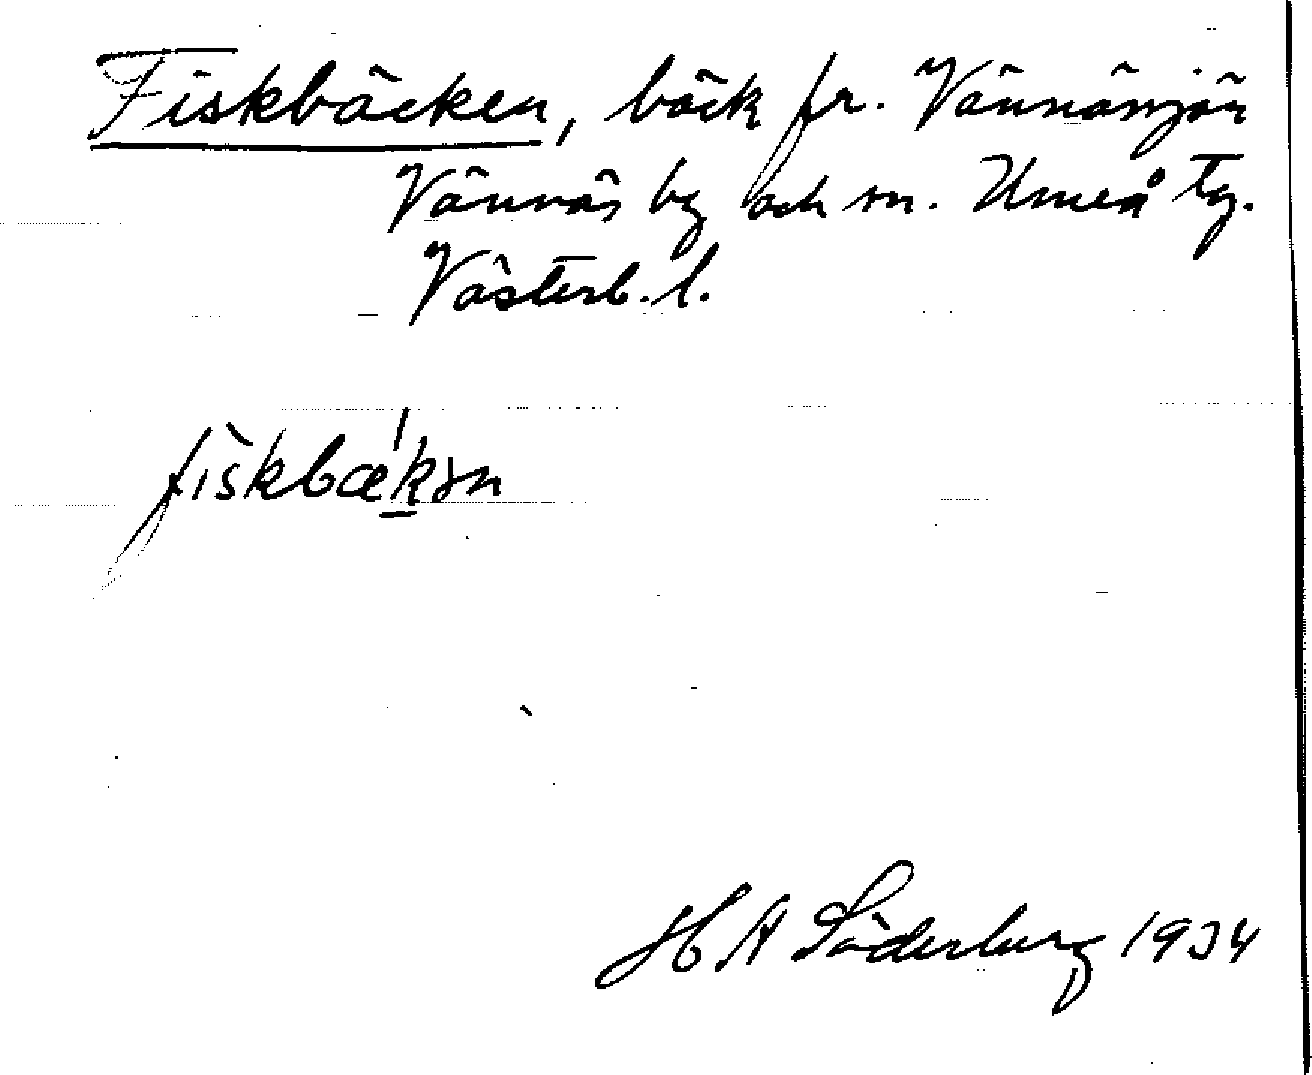 Fiskbäcken, bäck fr. Vännäsjön
Vännäs by och sn. Umeå tg.
Västerb. l.
fìskbæ'kən
H A Söderberg 1934